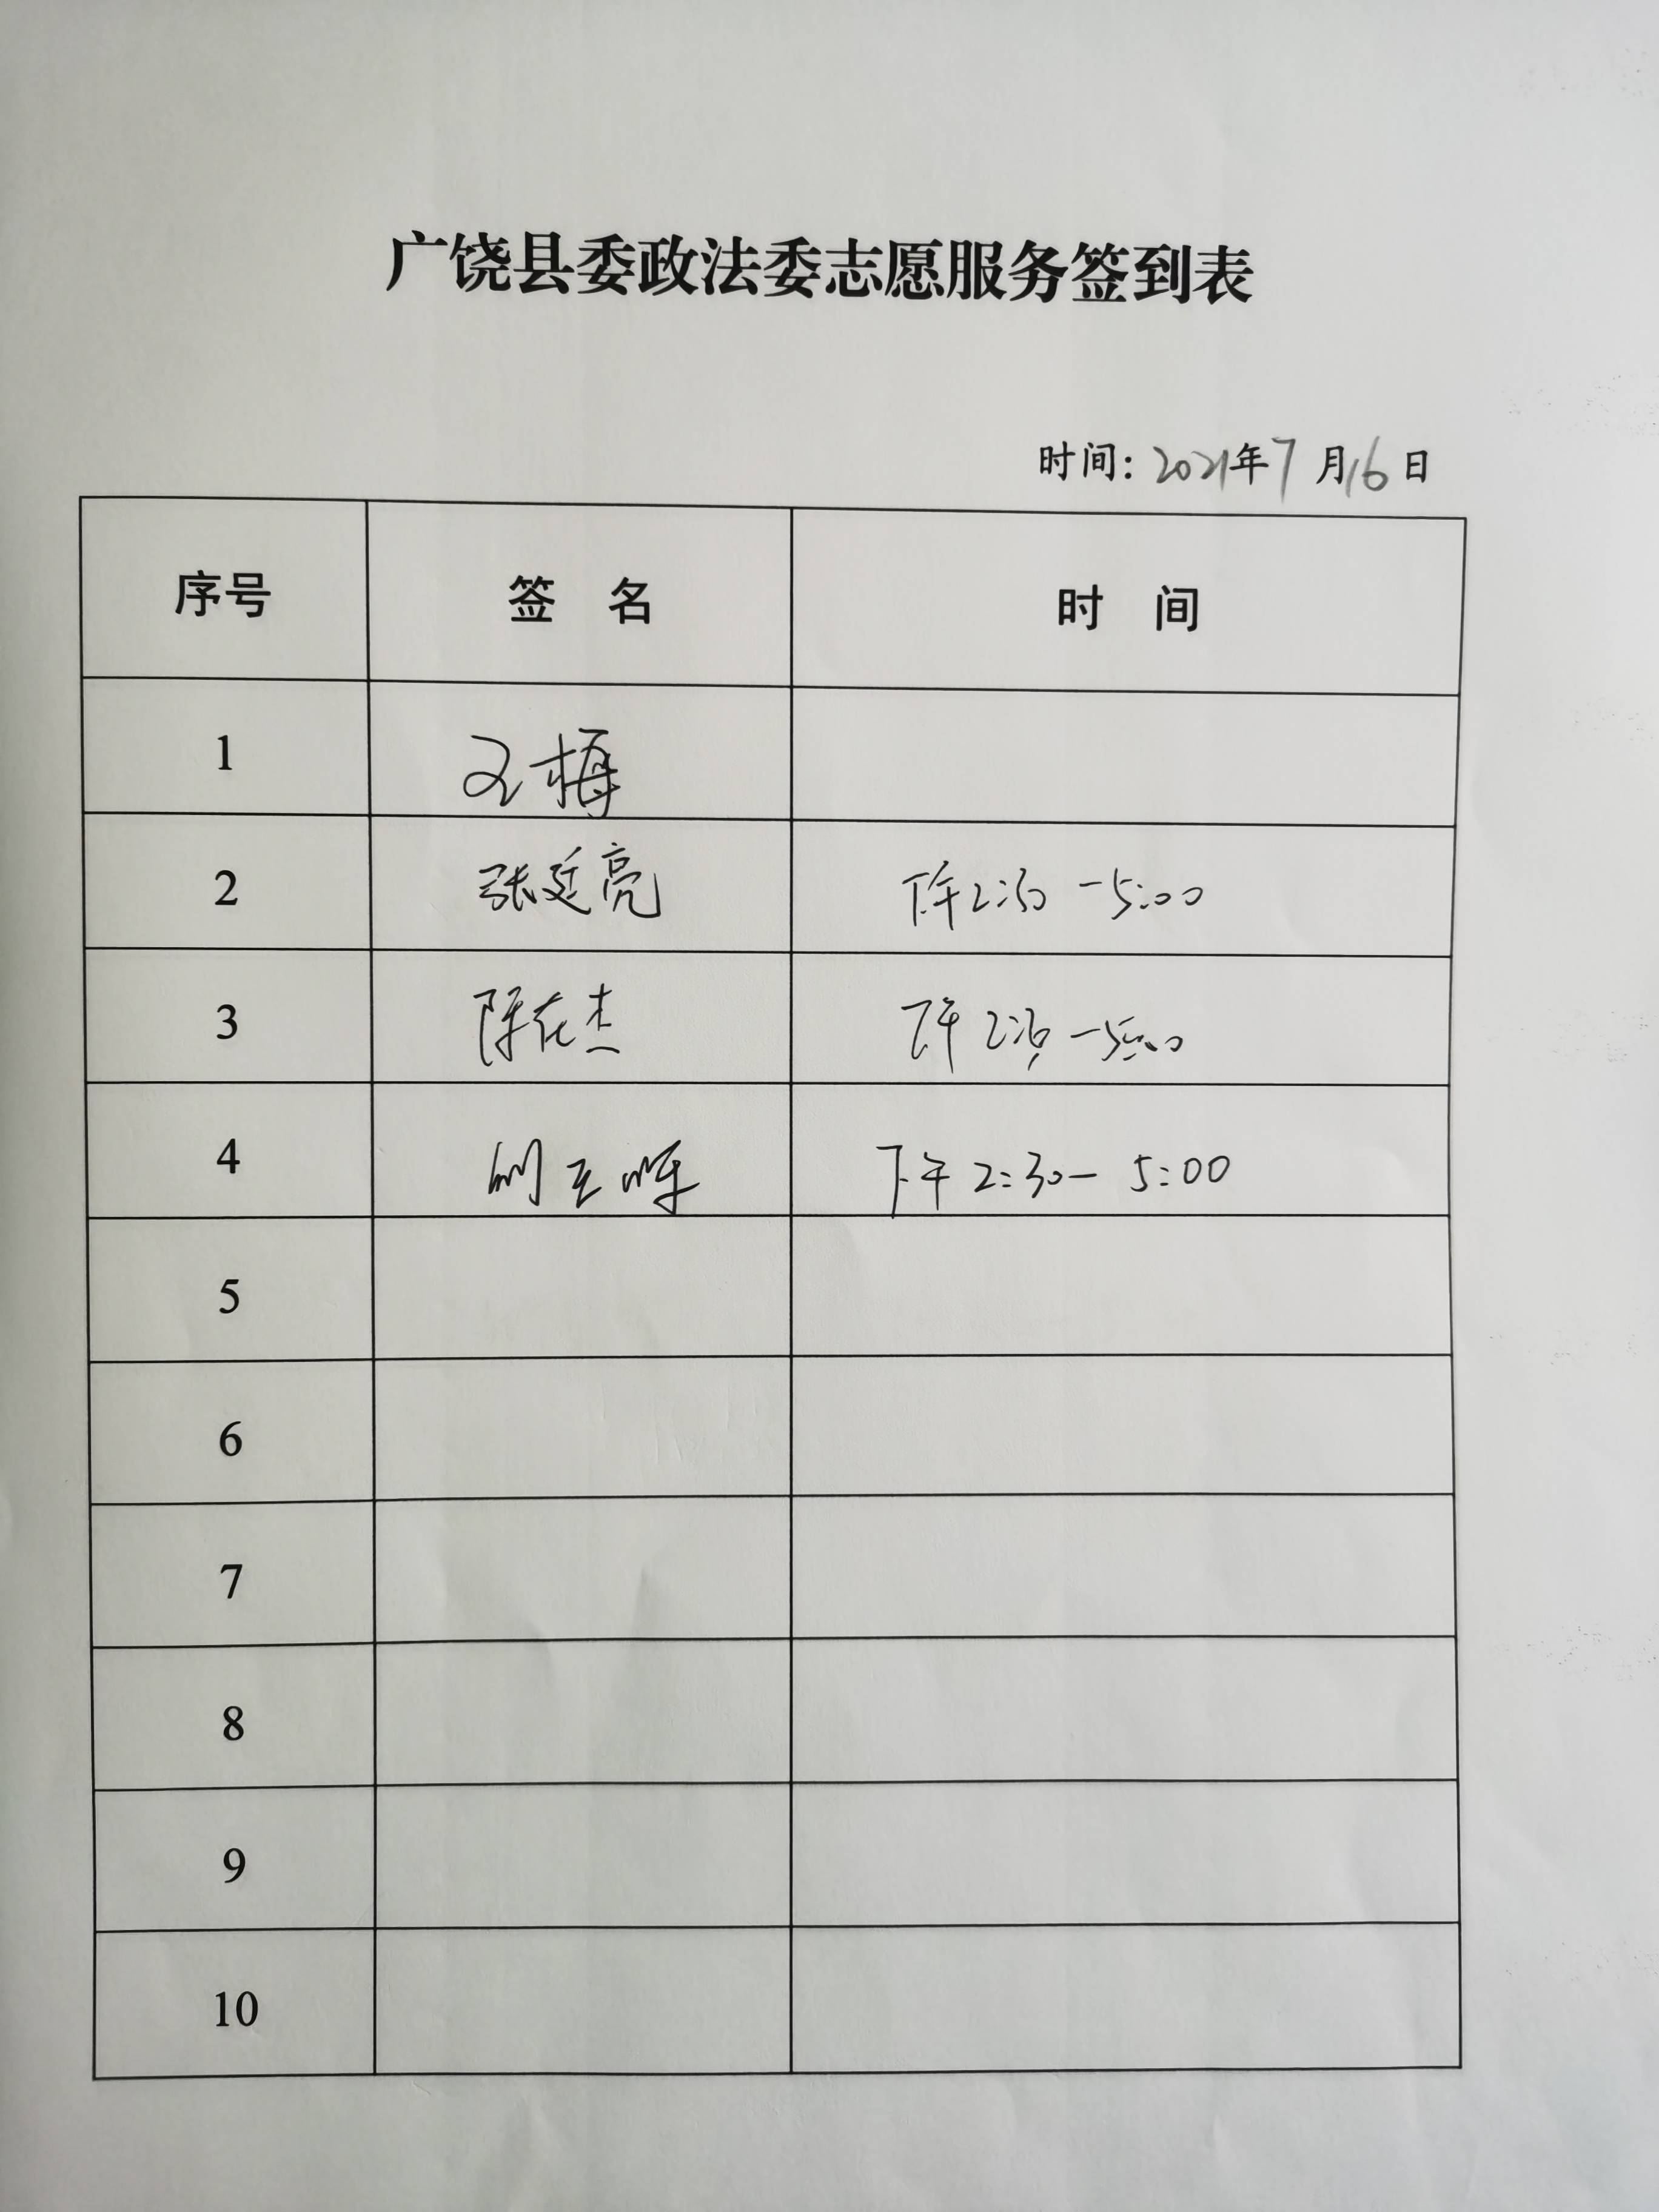 广饶县委政法委志愿服务签到表
时间：2021年7月16日
序号 签 名 时 间
1 梅
2 张廷亮 下午2:30-5:00
3 陈在杰 下午2:30-5:00
4 下午2:30-5:00
5
6
7
8
9
10